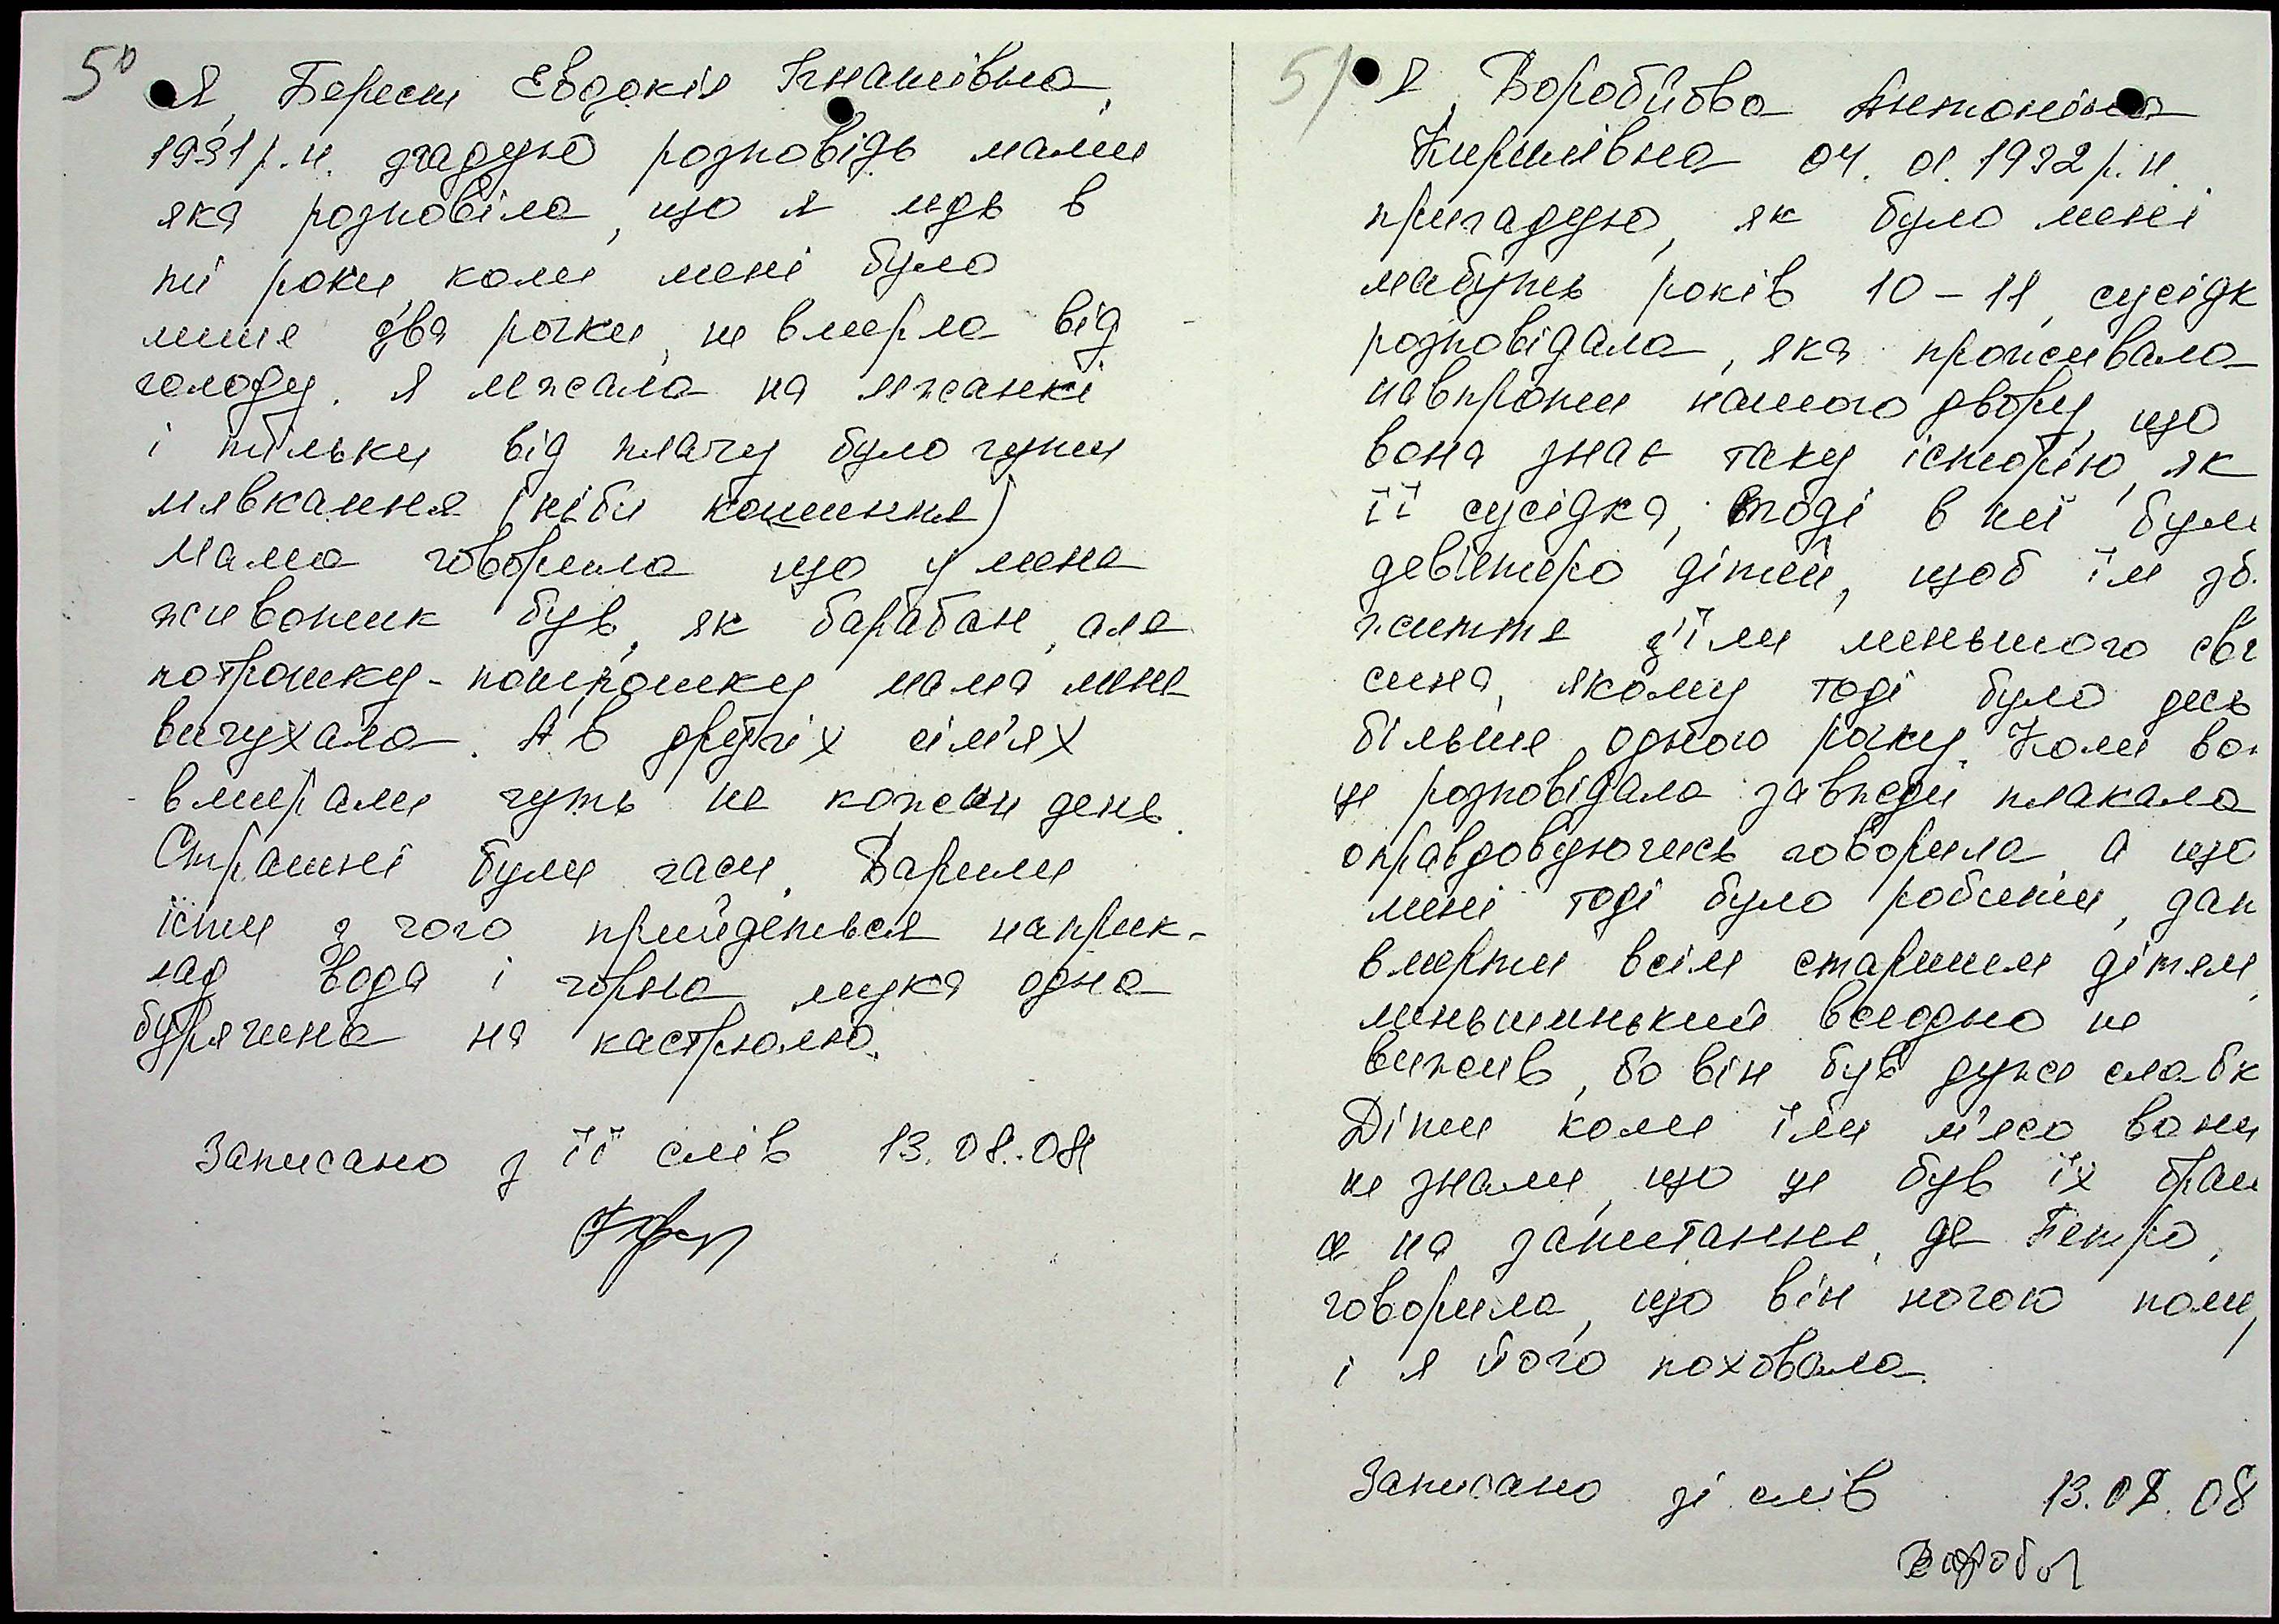 50
Я, Берест Евдокія Ігнатівна,
1931 р.н. згадую розповідь мами
яка розповіла, що я ледь в
ті роки, коли мені було
лише два рочки, не вмерла від
голоду. Я лежала на лежанкі
і тільки від плачу було чути
мявкання (ніби кошиння)
Мама говорила що у мене
животик був, як барабан, але
потрошку-потрошку мама мене
вичухала. А в другіх сім'ях
вмирали чуть не кожен день.
Страшні були часи. Варили
їсти з чого прийдеться наприк-
лад вода і чорна мука одна
бурячина на кастрюлю.
Записано з її слів 13.08.08
51
Я, Воробйова Антоніна
Кирилівна 04. 01. 1932 р.н.
пригадую, як було мені
мабуть років 10-11, сусідк
розповідала, яка проживала
навпроти нашого двору, що
вона знає таку історію, як
її сусідка, тоді в неї були
девʼятеро дітей, щоб їм зб.
життя з'їли меньшого сво
сина, якому тоді було десь
більше одного рочку. Коли во
це розповідала завжди плакала
оправдовуючись говорила, а що
мені тоді було робити, дать
вмерти всім старшим дітям,
меньшинький всеодно не
вижив, бо він був дуже слабк
Діти коли їли м'ясо вони
не знали, що це був їх брат
а на запитання, де Петро,
говорила, що він ночою пом
і я його поховала.
Записано зі слів 13.08.08
Вороб